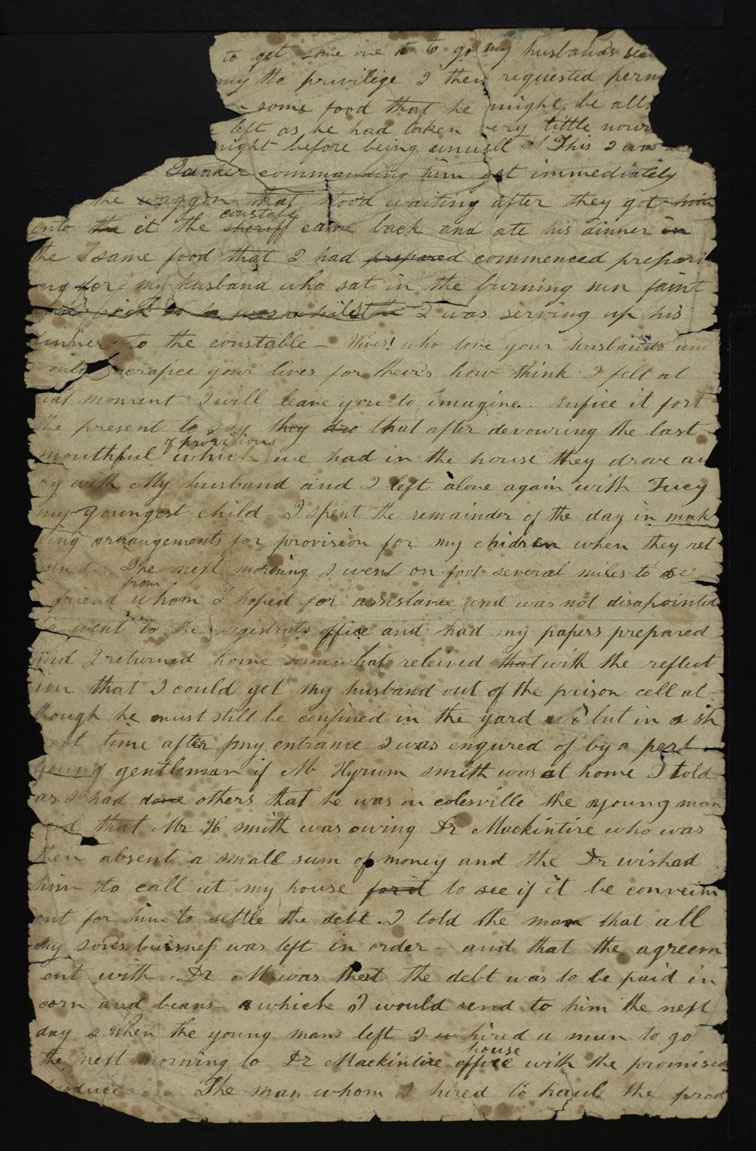 to get some one to to go my husbands
my the privilege I then requested perm
some food that he might be all
left as he had taken very little nour
night before being unwell This I was
Quaker commanding him get immediately
the waggon that stood waiting after they got him
into the it the sheriff constable came back and ate his dinner in
the same food that I had prepared commenced prepari
ng for my husband who sat in the burning sun faint
I was serving up his
dinner to the constable — Wives! who love your husbands
sacrafice your lives for theirs how think I felt at
that moment I will leave you to imagine. Sufice it for
the present to say they that after devouring the last
mouthful of provisions which we had in the house they drove aw
ay with My husband and I left alone again with Lucy
my youngest child I spent the remainder of the day in mak
ing arrangements for provision for my chidren when they ret
The next morning I went on foot several miles to se
friend from whom I hoped for assistance and was not disapointed
went to the magistrate office and had my papers prepared
and I returned home somewhat releived that with the reflect
ion that I could get my husband out of the prison cell al
though he must still be confined in the yard but in a sh
ort time after my entrance I was enqured of by a pert
young gentleman if Mr Hyrum smith was at home I told
as I had done others that he was in colesville the young man
said that Mr H smith was owing Dr Mackintire who was
then absent a small sum of money and the Dr wished
him to call at my house for it to see if it be conveini
ent for him to settle the debt. I told the man that all
my sons buisness was left in order — and that the agreem
ent with Dr M was that the debt was to be paid in
corn and beans — which I would send to him the next
day When the young man left I hired a man to go
the next morning to Dr Mackintire office house with the promised
produce The man whom I hired to haul the prod